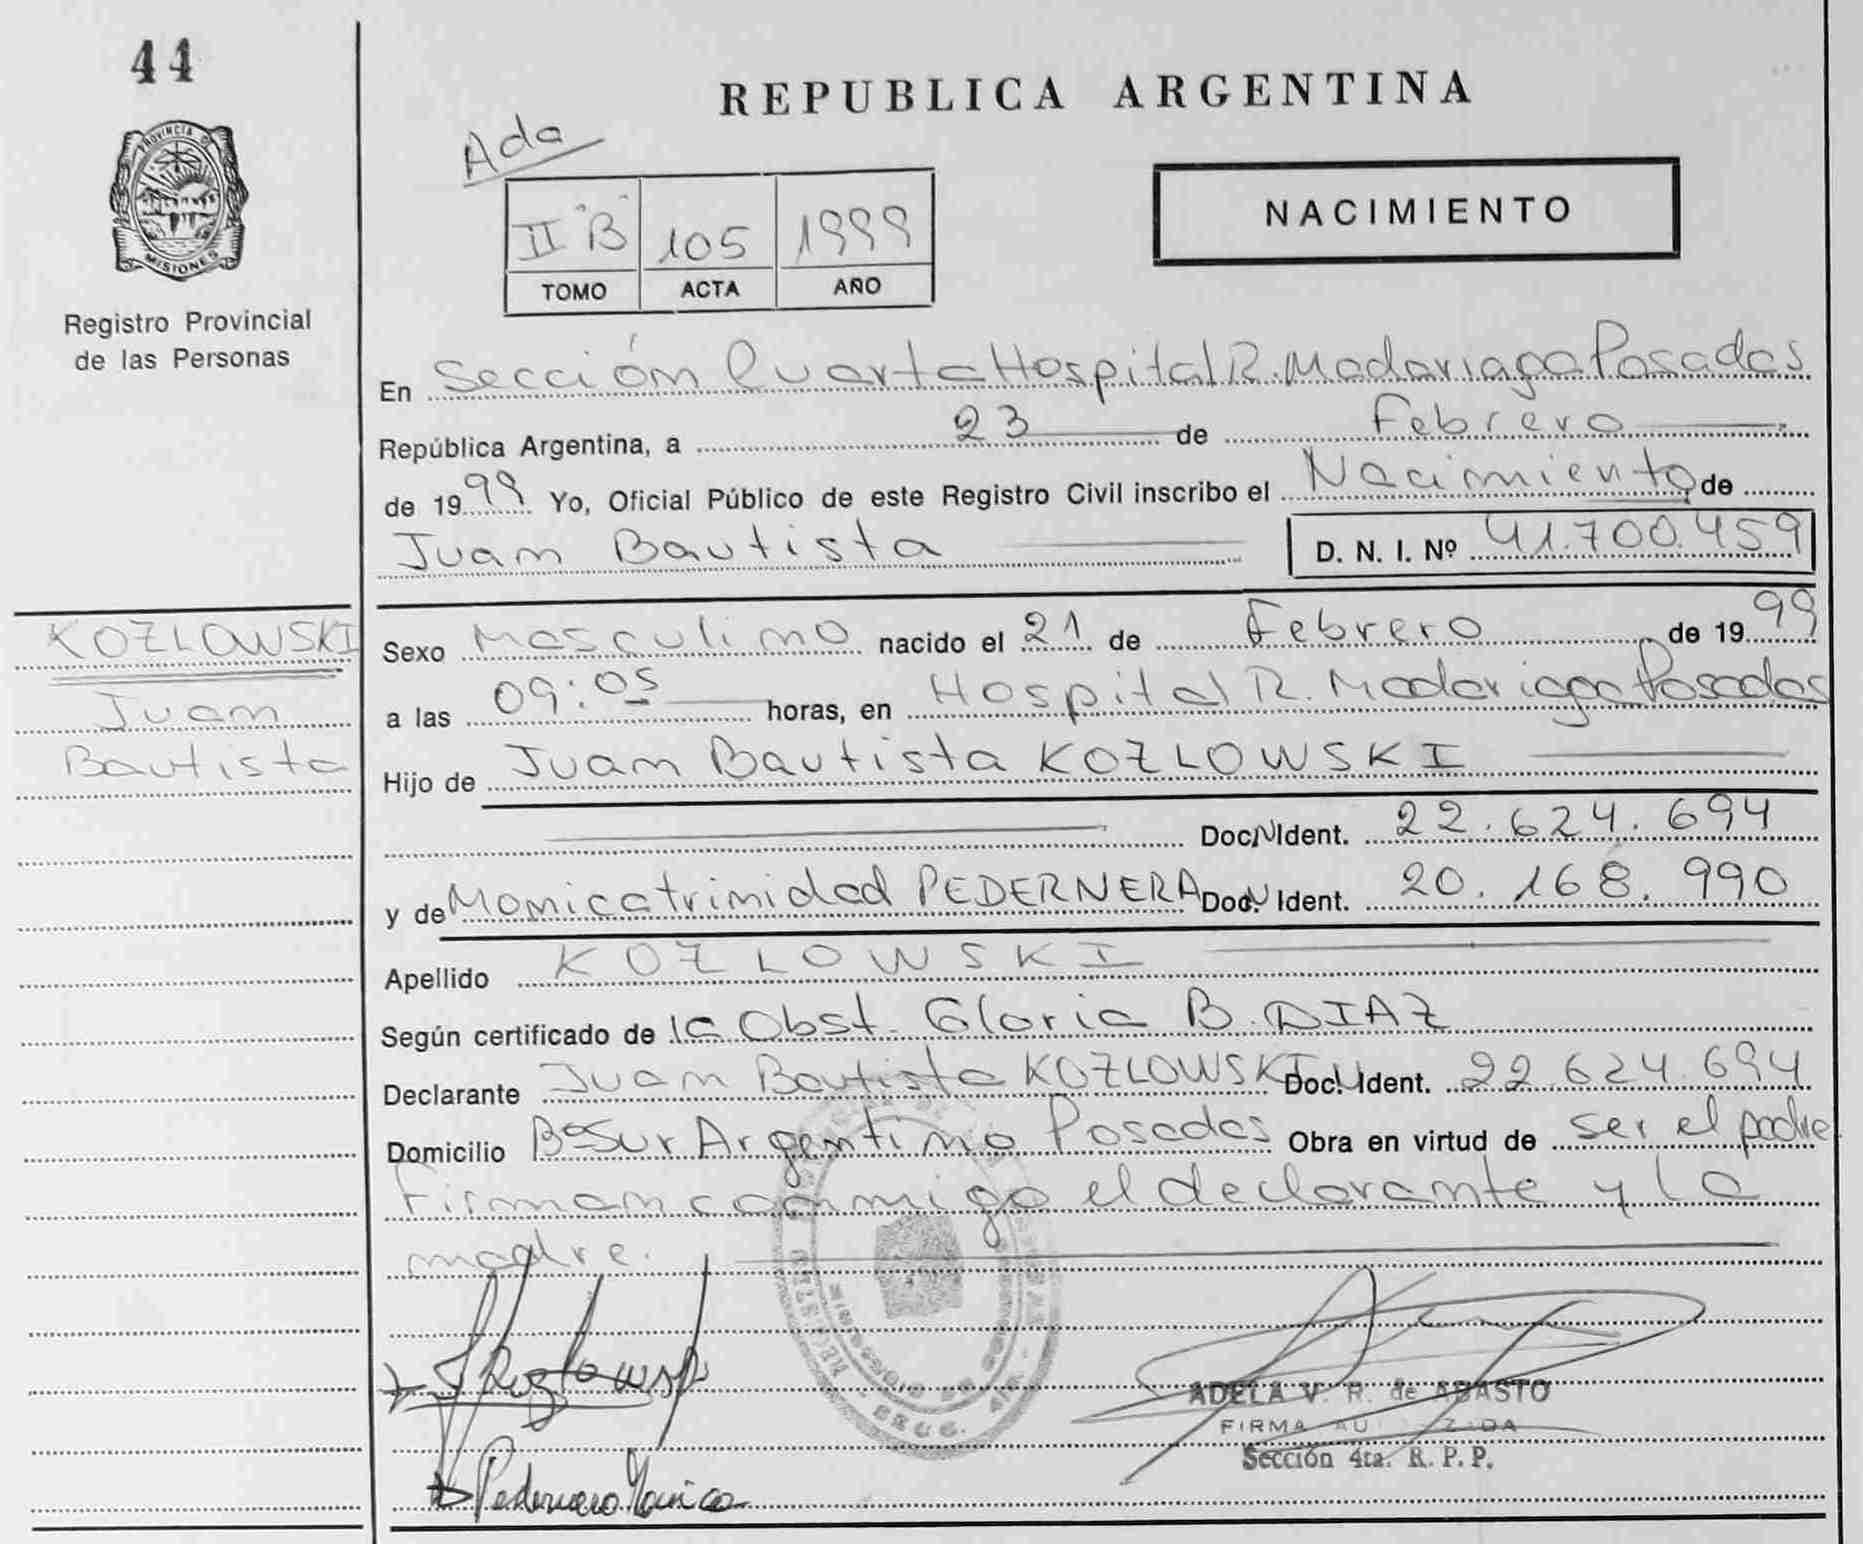 44
REPUBLICA ARGENTINA
Ada
PROVINCIA D
MISIONES
II "B" 105 1999
TOMO ACTA AÑO
NACIMIENTO
Registro Provincial
de las Personas
En Sección Cuarta Hospital R. Madariaga Posadas
República Argentina, a 23 de Febrero
de 1999 Yo, Oficial Público de este Registro Civil inscribo el Nacimiento de
Juan Bautista D. N. I. Nº 41.700.459
KOZLOWSKI
Juan
Bautista
Sexo Masculino nacido el 21 de Febrero de 1999
a las 09:05 horas, en Hospital R. Madariaga Posadas
Hijo de Juan Bautista KOZLOWSKI
Doc. Ident. 22.624.694
y de Monica trinidad PEDERNERA Doc. Ident. 20.168.990
Apellido KOZLOWSKI
Según certificado de la Obst. Gloria B. DIAZ
Declarante Juan Bautista KOZLOWSKI Doc. Ident. 22.624.694
Domicilio Bº Sur Argentino Posadas Obra en virtud de ser el padre
Firman conmigo el declarante y la
madre.
ADELA V. R. de ABASTO
FIRMA
Sección 4ta. R. P. P.
Pedernera Monica